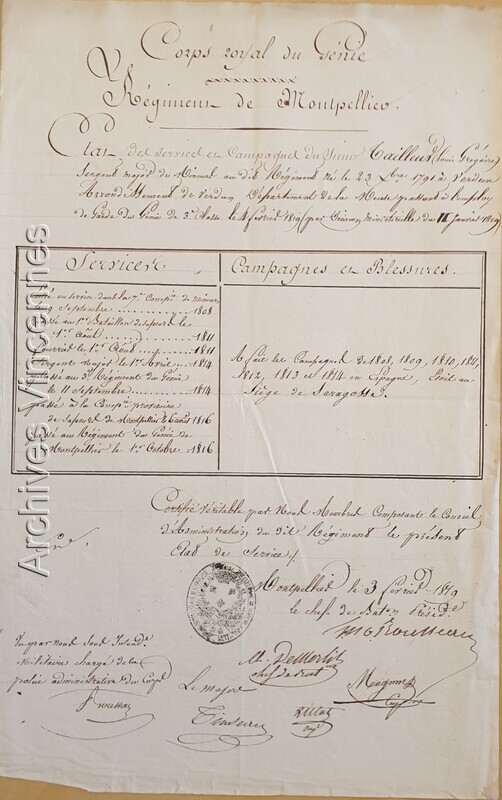 Corps royal du Génie
Régiment de Montpellier.
Etat des services et Campagnes du Sieur Tailleur, Louis Grégoire
Sergent major du Normal au dit Régiment Né le 23 Xbre 1790 à Verdun
Arrondissement de Verdun Département de la Meuse passant à l'emploi
de Garde du Génie de 3e Classe le 1 février 1819 (par Décision Ministérielle du Janvier 1819)
Services
Campagnes et Blessures.
au service dans la 7e Compie de mineurs
Septembre 1808
passé au 1er Bataillon de sapeurs le
1er Août 1811
fourrier le 1er Août 1811
Sergent Major le 1er
passé au 3e Régiment du Génie
le 11 Septembre 1814
passé à la Compie provisoire
de sapeurs de Montpellier le 1816
passé au Régiment du Génie de
Montpellier le 1er Octobre 1816
A fait les Campagnes de 1808, 1809, 1810, 1811,
1812, 1813 et 1814 en Espagne, Etoit au
Siège de Saragosse.
Certifié Véritable par Nous Membres Composant le Conseil
d'Administration du dit Régiment le présent
Etat de Service.
Montpellier le 3 février 1819
le chef de Baton Présidt
Rousseau
Vu par nous Sous Intendt
Militaire chargé de la
police administrative du Corps
Le major
chef de
Archives Vincennes